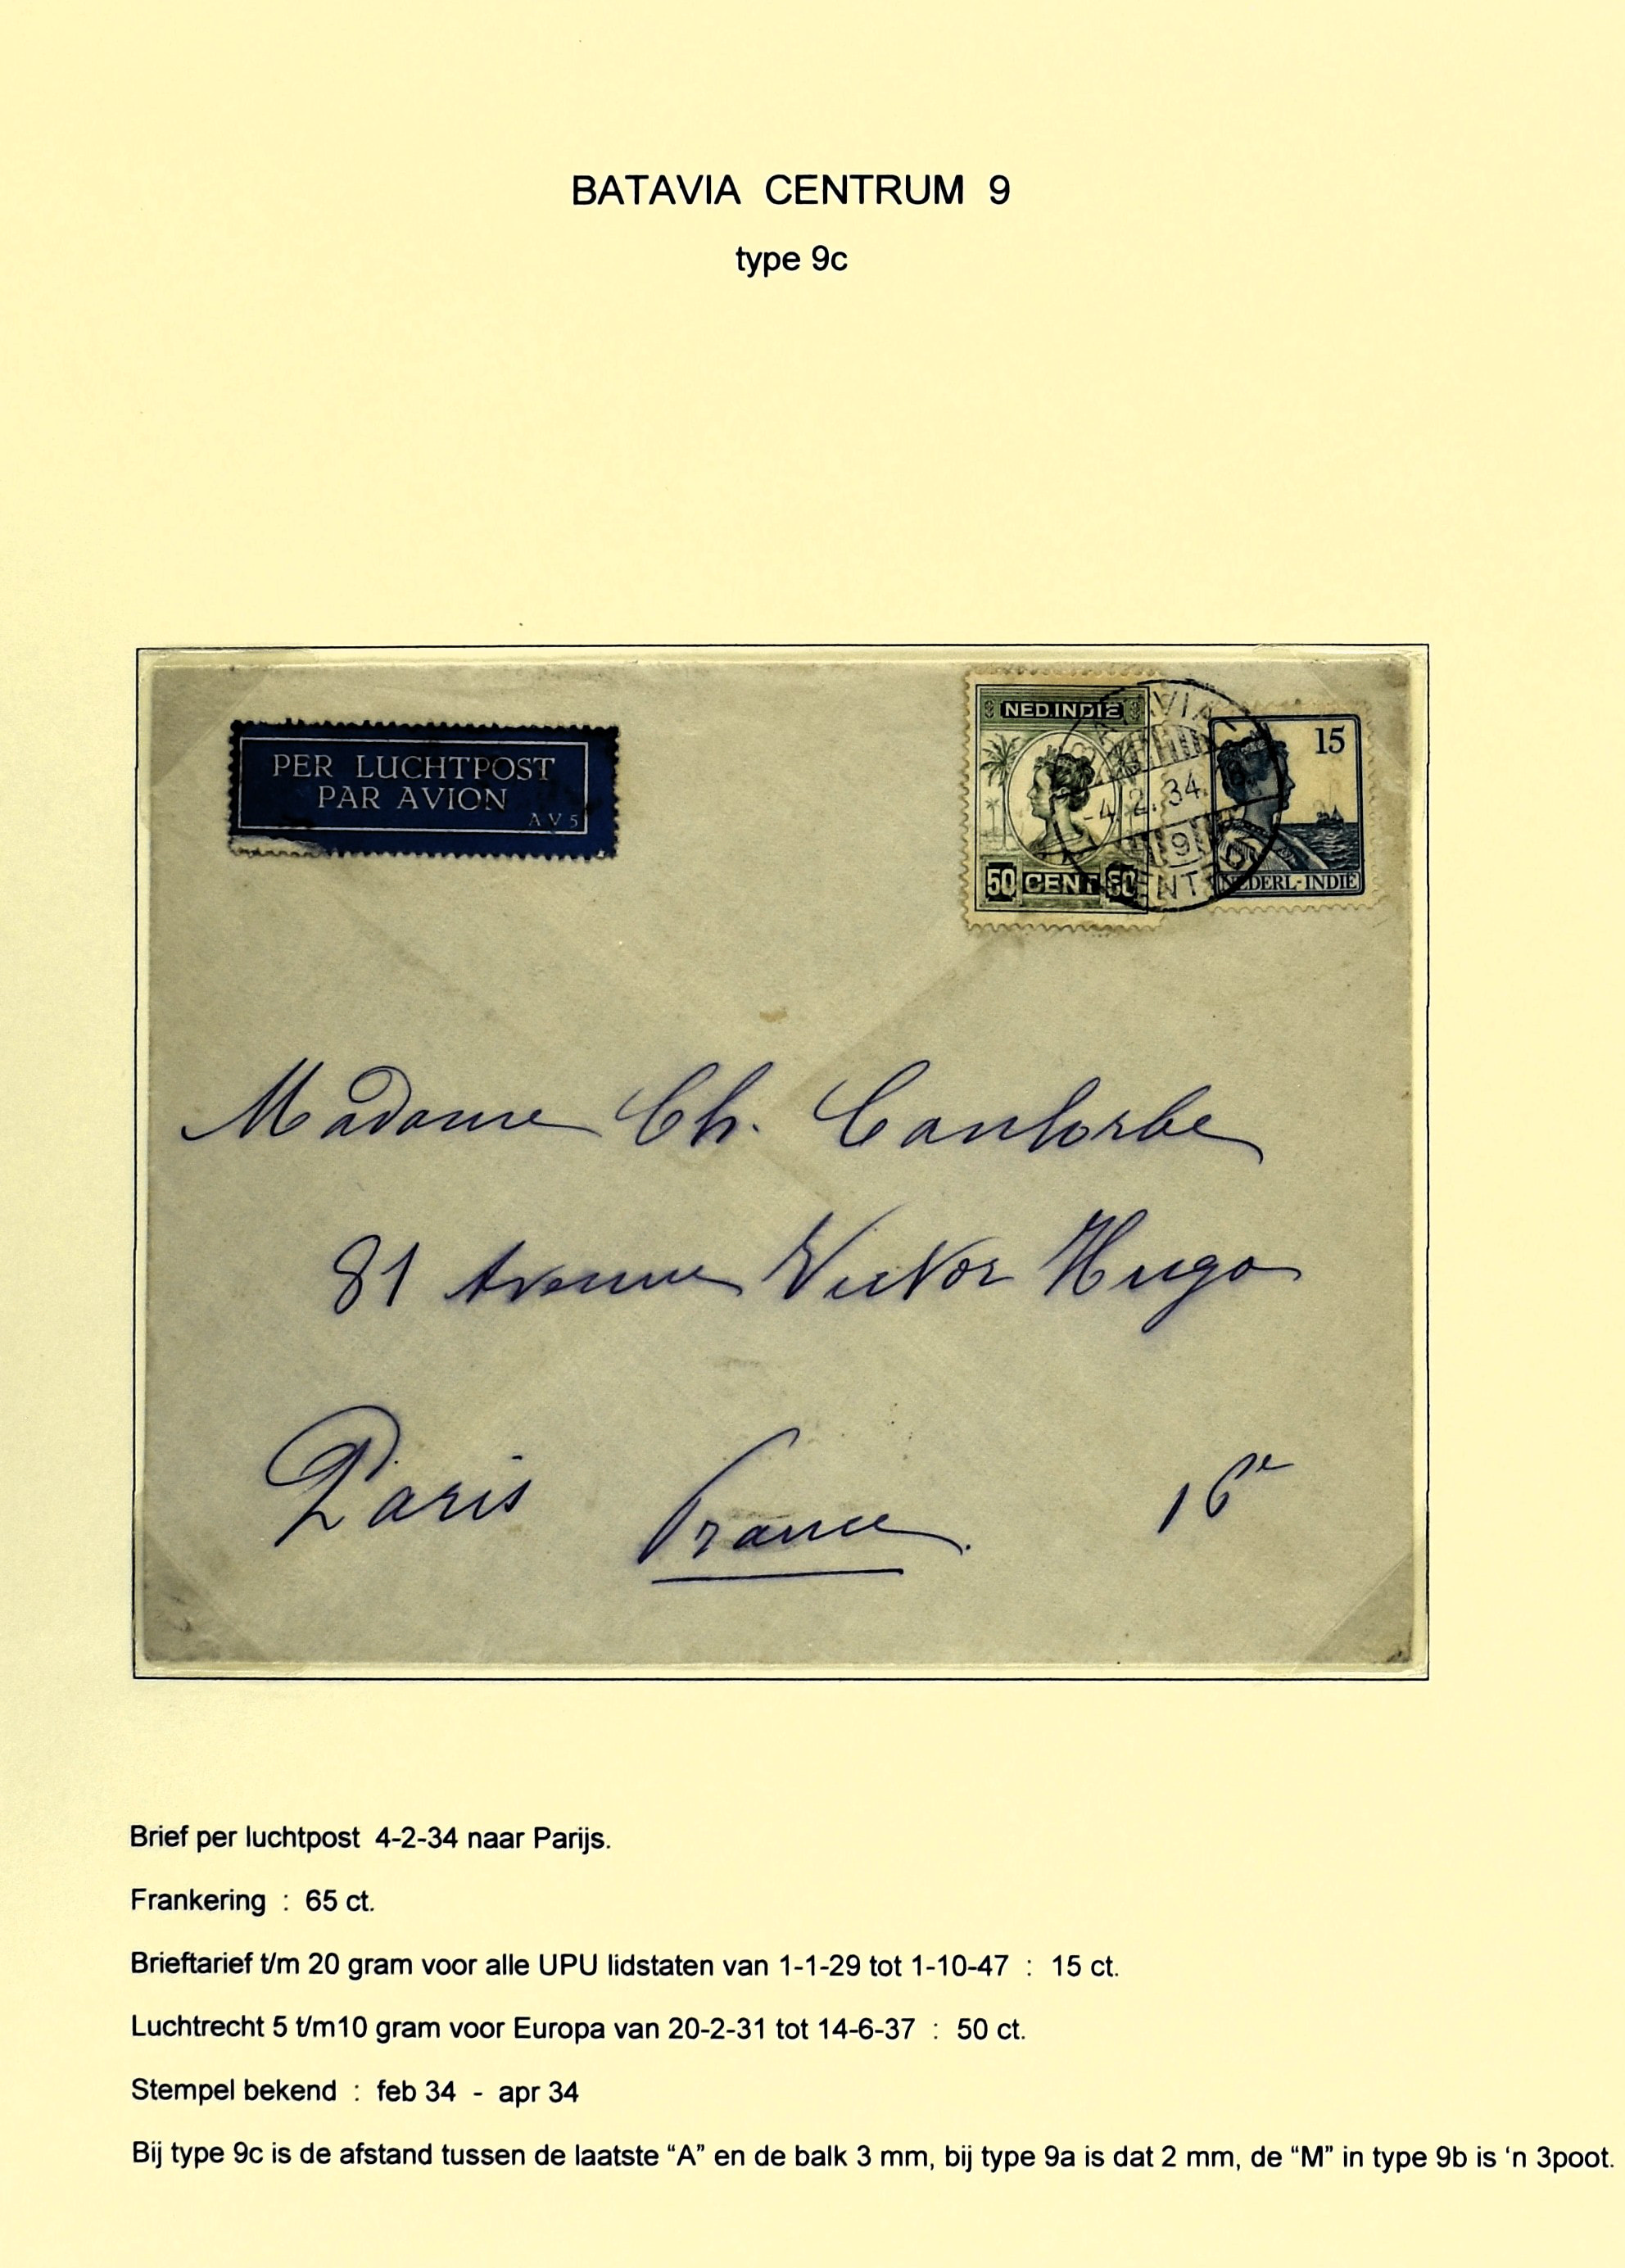 BATAVIA CENTRUM 9
type 9c
PER LUCHTPOST
PAR AVION
AV5
NED.INDIË
50 CENT 50
15
NEDERL-INDIË
-4.2.34.
9
Madame Ch. Canlorbe
81 Avenue Victor Hugo
Paris France. 16e
Brief per luchtpost 4-2-34 naar Parijs.
Frankering : 65 ct.
Brieftarief t/m 20 gram voor alle UPU lidstaten van 1-1-29 tot 1-10-47 : 15 ct.
Luchtrecht 5 t/m10 gram voor Europa van 20-2-31 tot 14-6-37 : 50 ct.
Stempel bekend : feb 34 - apr 34
Bij type 9c is de afstand tussen de laatste “A” en de balk 3 mm, bij type 9a is dat 2 mm, de “M” in type 9b is ‘n 3poot.